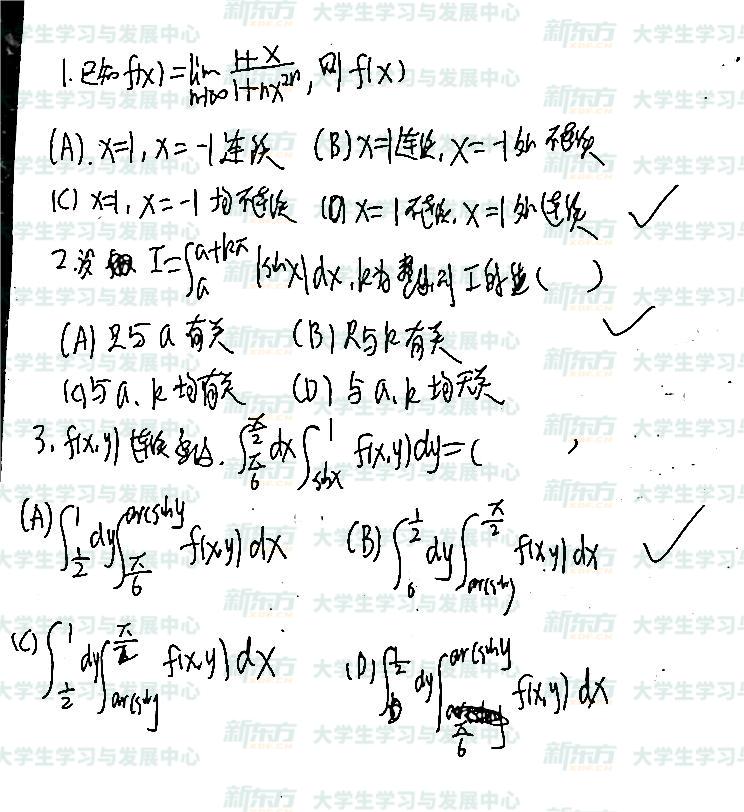 1.已知f(x)=lim n→∞ (1+x)/(1+nx^{2n}), 则f(x)
(A). x=1, x=-1连续 (B) x=1连续, x=-1处不连续
(C) x=1, x=-1均不连续 (D) x=1不连续, x=1处连续
2.设 I=∫_a^{a+kπ} |sinx|dx, k为整数,则I的值( )
(A) 只与a有关 (B) 只与k有关
(C)与a、k均有关 (D) 与a、k均无关
3. f(x,y)连续, ∫_{π/6}^{π/2} dx∫_{sinx}^{1} f(x,y)dy=( ,
(A) ∫_{1/2}^{1} dy∫_{π/6}^{arcsiny} f(x,y)dx (B) ∫_{0}^{1/2} dy∫_{arcsiny}^{π/2} f(x,y)dx
(C) ∫_{1/2}^{1} dy∫_{arcsiny}^{π/2} f(x,y)dx (D) ∫^{1/2} dy∫_{π/6}^{arcsiny} f(x,y)dx
新东方 XDF.CN 大学生学习与发展中心